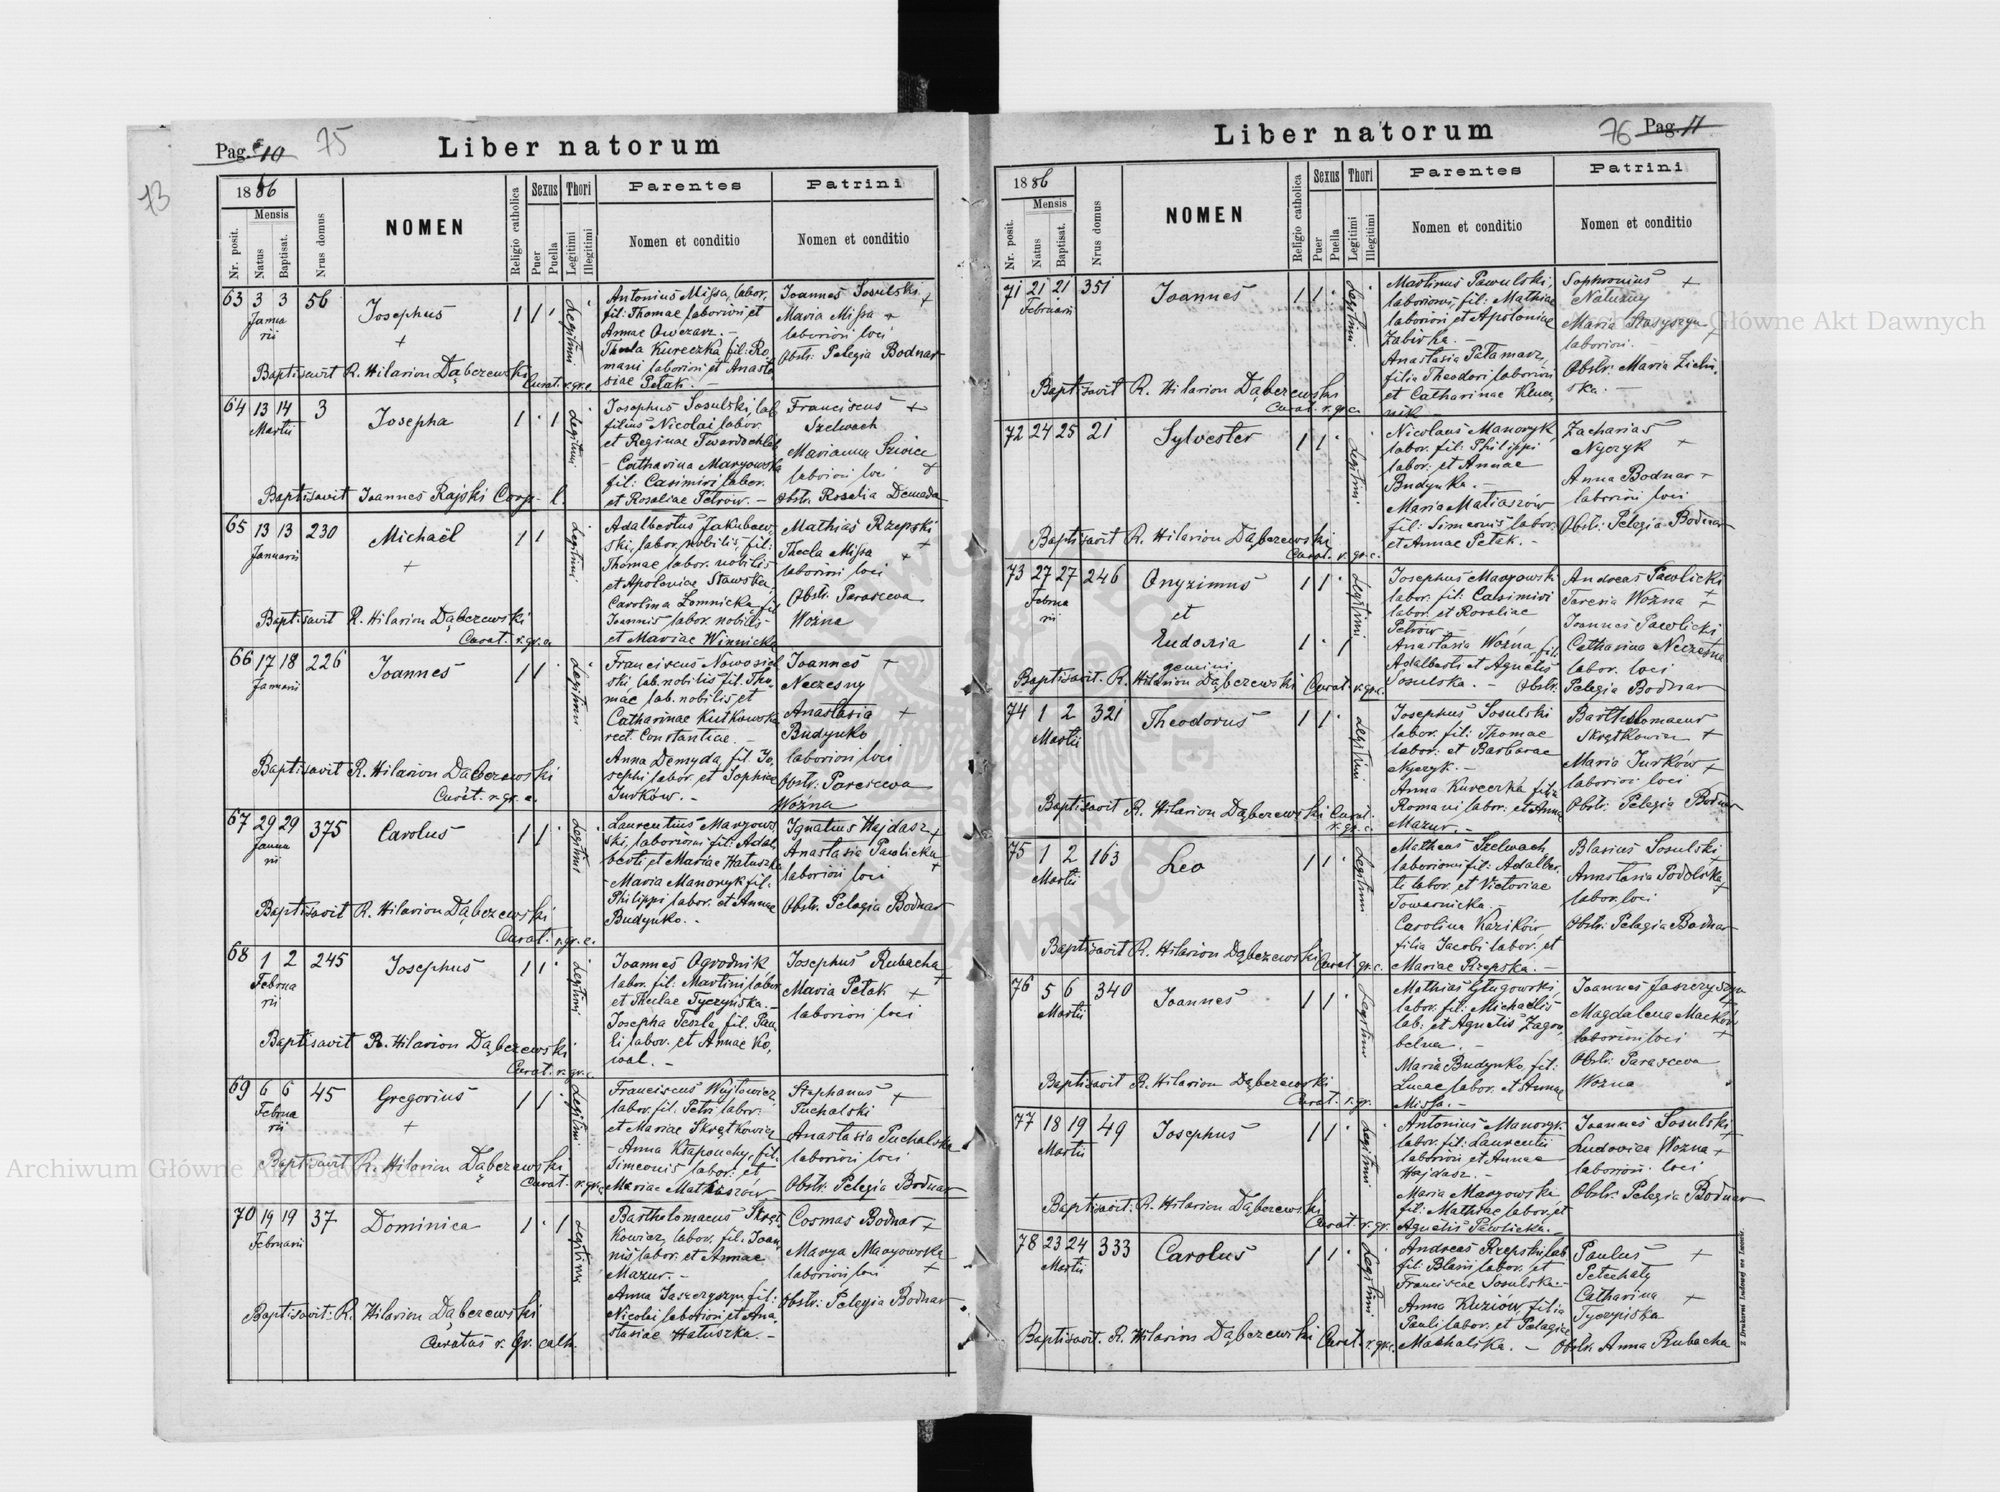 Pag. 10
75
Liber natorum
73
1886
Mensis
Nr. posit.
Natus
Baptisat.
Nrus domus
NOMEN
Religio catholica
Sexus
Puer
Puella
Thori
Legitimi
Illegitimi
Parentes
Nomen et conditio
Patrini
Nomen et conditio
63 3 3 56
Janua
rii
Josephus
+
1 1
Legitimi
Antonius Missa, labor.
fil: Thomae laborioni et
Annae Owczarz. –
Thecla Kureczka fil: Ro,
mani laborioni et Anasta
siae Petak. –
Joannes Sosulski +
Maria Missa +
laborioni loci
Obstr: Pelagia Bodnar
Baptisavit R. Hilarion Dąbczewski
Curat. r. gr. c.
64 13 14 3
Martii
Josepha
1 1
Legitimi
Josephus Sosulski, lab.
filius Nicolai labor.
et Reginae
– Catharina Maryowska
fil: Casimiri labor.
et Rosaliae Petrów. –
Franciscus +
Szelwach
Marianna
laborioni loci +
obstr. Rosalia Demada
Baptisavit Joannes Rajski Coop. l.
65 13 13 230
Januarii
Michaël
+
1 1
Legitimi
Adalbertus Jakubow,
ski, labor. nobilis, fil:
Thomae labor. nobilis
et Apoloniae Stawska,
Carolina Łomnicka, fil
Joannis labor. nobilis
et Mariae Winnicka
Mathias Rzepski
+
Thecla Missa +
laborioni loci
Obstr. Parasceva
Woźna
Baptisavit R. Hilarion Dąbczewski
Curat. r. gr. c.
66 17 18 226
Januarii
Joannes
1 1
Legitimi
Franciscus Nowosiel
ski lab. nobilis fil. Tho,
mae lab. nobilis et
Catharinae Kutkowska
rect. Constantiae. –
Anna Demyda, fil. Jo,
sephi labor. et Sophiae
Jurków. –
Joannes +
Neczesny
Anastasia +
Budynko
laborioni loci
Obstr: Parasceva
Woźna
Baptisavit R. Hilarion Dąbczewski
Curat. r. gr. c.
67 29 29 375
Janua
rii
Carolus
1 1
Legitimus
Laurentius Maryows
ski, laborioni fil: Adal,
berti et Mariae Hatuszka
– Maria Manoryk fil.
Philippi labor. et Annae
Budynko. –
Ignatius Hajdasz +
Anastasia Pawlicka +
laborioni loci
Obstr. Pelagia Bodnar
Baptisavit R. Hilarion Dąbczewski
Curat. r. gr. c.
68 1 2 245
Februa
rii
Josephus
1 1
Legitimi
Joannes Ogrodnik
labor. fil: Martini labor
et Theclae Tyczyńska. –
Josepha Teszla fil. Pau,
li labor. et Annae Ko,
wal. –
Josephus Rubacha +
Maria Petak +
laborioni loci
Baptisavit R. Hilarion Dąbczewski
Curat. r. gr. c.
69 6 6 45
Februa
rii
Gregorius
+
1 1
Legitimi
Franciscus Wojtowicz
labor. fil. Petri labor.
et Mariae Skrętkowicz
– Anna Kłapouchy, fil.
Simeonis labor. et
Mariae Matiaszów
Stephanus +
Puchalski
Anastasia Puchalska
laborioni loci
Obstr. Pelagia Bodnar
Baptisavit R. Hilarion Dąbczewski
Curat. r. gr. c.
70 19 19 37
Februarii
Dominica
1 1
Legitimi
Bartholomaeus Skręt
kowicz, labor. fil. Joan,
nis labor. et Annae
Mazur. –
Anna Jaszczyszyn fil:
Nicolai laborioni et Ana,
stasiae Hatuszka. –
Cosmas Bodnar +
Marya Maryowska
laborioni loci +
Obstr: Pelagia Bodnar
Baptisavit R. Hilarion Dąbczewski
Curatus r. gr. cath.
Liber natorum
76
Pag. 11
1886
Mensis
Nr. posit.
Natus
Baptisat.
Nrus domus
NOMEN
Religio catholica
Sexus
Puer
Puella
Thori
Legitimi
Illegitimi
Parentes
Nomen et conditio
Patrini
Nomen et conditio
71 21 21 351
Februarii
Joannes
1 1
Legitimi
Martinus Pawulski,
laborioni, fil: Mathiae
laborioni et Apoloniae
Żabirka. –
Anastasia Pałamarz,
filia Theodori laborioni
et Catharinae
Sophronius +
Naturny
Maria Stasyszyn +
laborioni. –
Obstr: Maria Zielin,
ska. –
Baptisavit R. Hilarion Dąbczewski
Curat. r. gr. c.
72 24 25 21
Sylvester
1 1
Legitimi
Nicolaus Manoryk
labor. fil: Philippi
labor. et Annae
Budynko. –
Maria Matiaszów
fil: Simeonis labor.
et Annae Petak. –
Zacharias
Nyczyk +
Anna Bodnar +
laborioni loci
Obstr: Pelagia Bodnar
Baptisavit R. Hilarion Dąbczewski
Curat. r. gr. c.
73 27 27 246
Februa
rii
Onyzimus
et
Eudoxia
gemini
1 1
1 1
Legitimi
Josephus Maryowski
labor. fil: Casimiri
labor. et Rosaliae
Petrów –
Anastasia Woźna, fil:
Adalberti et Agnetis
Sosulska. –
Andreas Pawlicki +
Teresia Woźna +
Joannes Pawlicki +
Catharina Neczesna
labor. loci
Obstr: Pelagia Bodnar
Baptisavit R. Hilarion Dąbczewski Curat r. gr. c.
74 1 2 321
Martii
Theodorus
1 1
Legitimi
Josephus Sosulski
labor. fil: Thomae
labor. et Barbarae
Nyczyk. –
Anna Kureczka filia
Romani labor. et Anna
Mazur. –
Bartholomaeus
Skrętkowicz +
Maria Jurków +
laborioni loci
Obstr: Pelagia Bodnar
Baptisavit R. Hilarion Dąbczewski Curat.
r. gr. c.
75 1 2 163
Martii
Leo
1 1
Legitimi
Matheus Szelwach
laborioni fil: Adalber,
ti labor. et Victoriae
Towarnicka. –
Carolina Kazików,
filia Jacobi labor. et
Mariae Rzepska. –
Blasius Sosulski +
Anastasia Podolska +
labor. loci
Obstr: Pelagia Bodnar
Baptisavit R. Hilarion Dąbczewski
Curat. gr. c.
76 5 6 340
Martii
Joannes
1 1
Legitimi
Mathias Glugowski
labor. fil: Michaëlis
lab: et Agnetis Zagro,
belna. –
Maria Budynko, fil:
Lucae labor. et Annae
Missa. –
Joannes Jaszczyszyn +
Magdalena Maćków
laborioni loci +
Obstr: Parasceva
Woźna
Baptisavit R. Hilarion Dąbczewski
Curat. r. gr.
77 18 19 49
Martii
Josephus
1 1
Legitimi
Antonius Manoryk
labor. fil: Laurentii
laborioni et Annae
Hajdasz. –
Maria Maryowski
fil: Mathiae labor. et
Agnetis Pawlicka. –
Joannes Sosulski +
Ludovica Woźna +
laborioni loci
Obstr: Pelagia Bodnar
Baptisavit: R. Hilarion Dąbczewski
Curat r. gr.
78 23 24 333
Martii
Carolus
1 1
Legitimi
Andreas Rzepski, lab
fil: Blasii labor. et
Franciscae Sosulska. –
Anna Kuziów, filia
Pauli labor. et Pelagiae
Machalska. –
Paulus +
Petechaty
Catharina +
Tyczyńska
Obstr: Anna Rubacha
Baptisavit. R. Hilarion Dąbczewski Curat. r. gr. c.
Z Drukarni Ludowej we Lwowie.
Archiwum Główne Akt Dawnych
Archiwum Główne Akt Dawnych